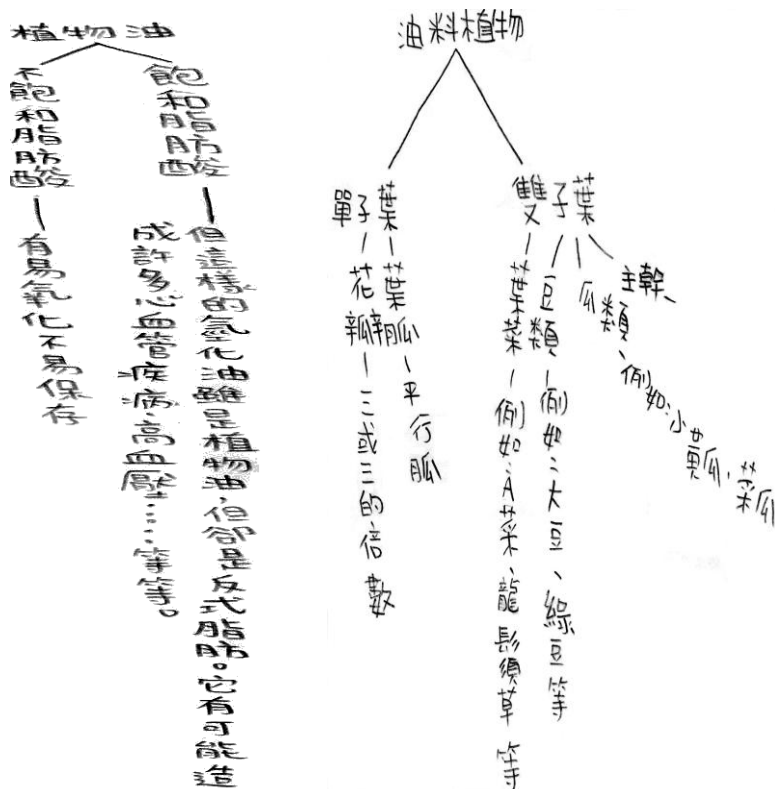 植物油
不飽和脂肪酸
有易氧化不易保存
飽和脂肪酸
但這樣的氫化油雖是植物油，但卻是反式脂肪。它有可能造
成許多心血管疾病、高血壓……等等。
油料植物
單子葉
花瓣—三或三的倍數
葉脈—平行脈
雙子葉
葉菜—例如：A菜、龍鬚草等
豆類—例如：大豆、綠豆等
瓜類、例如小黃瓜、菜瓜
主幹、